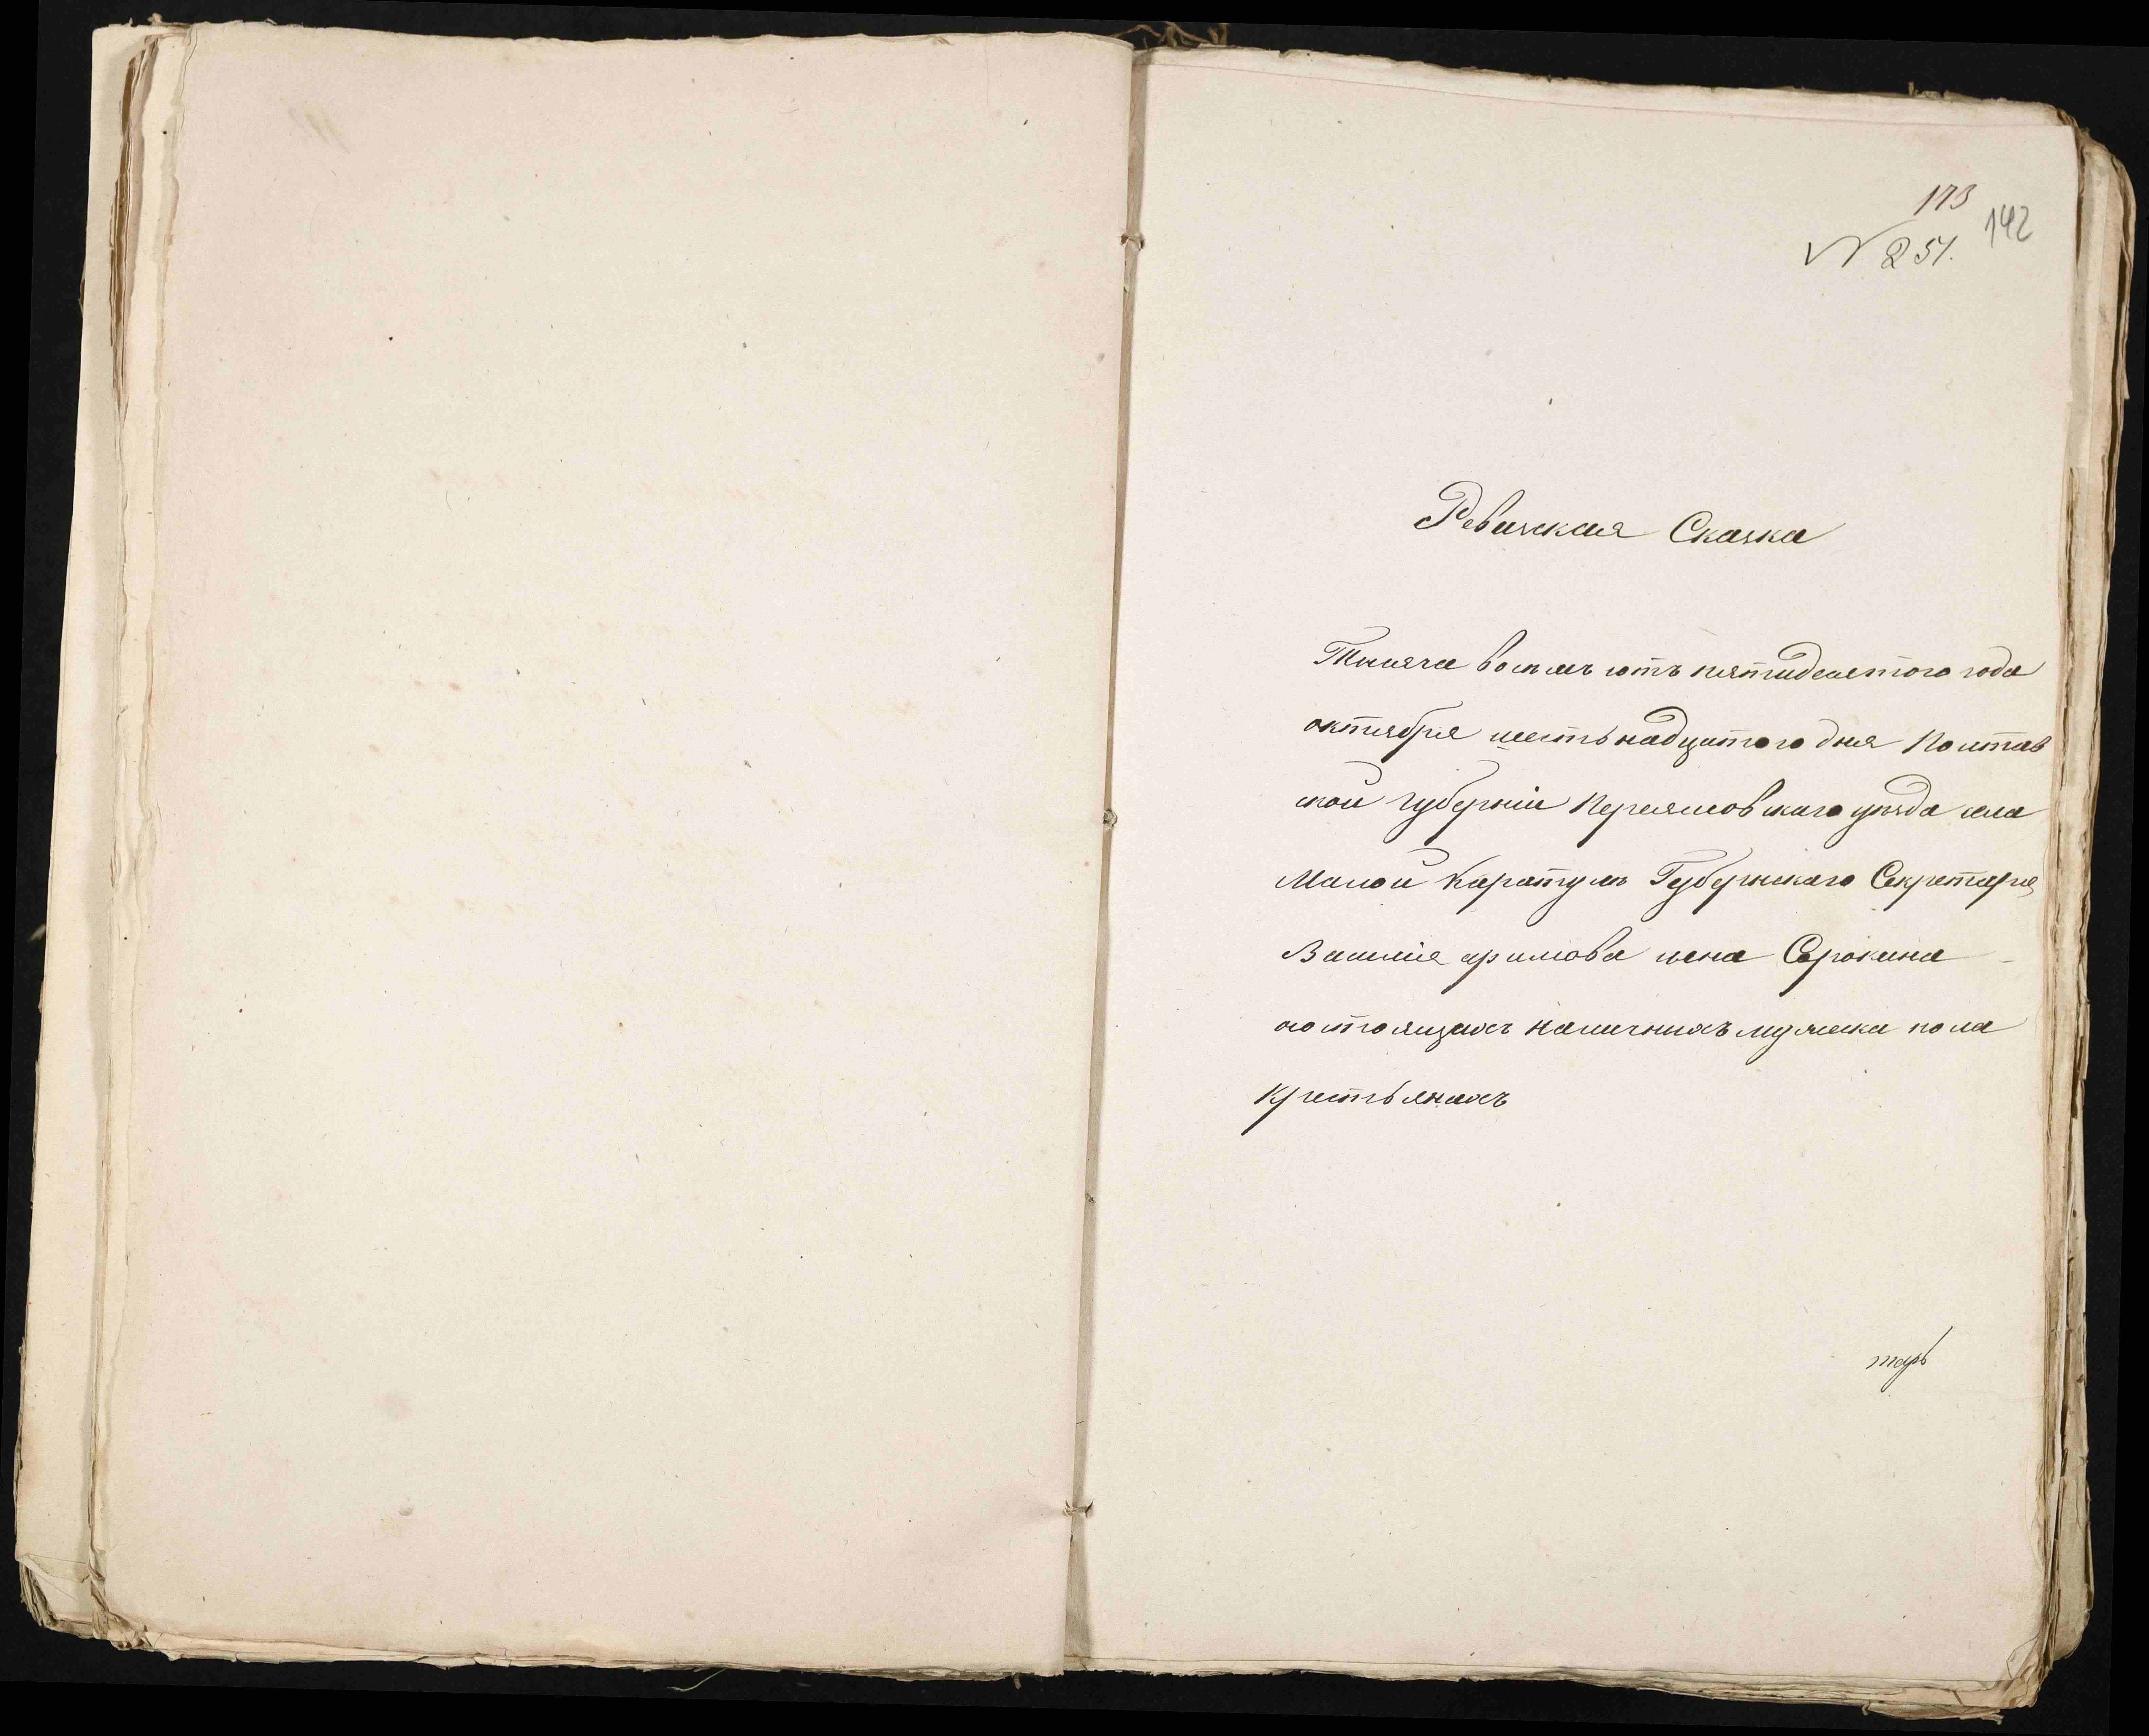 173
142
№ 251.
Ревизская Сказка
Тысяча восемь сотъ пятидесятого года
октября шестьнадцатого дня Полтав
ской губерніи Переяславскаго уѣзда села
Малой Каратули Губернскаго Секретаря
Василія сына Сорокина
состоящихъ наличныхъ мужеска пола
крестьянахъ
тарь